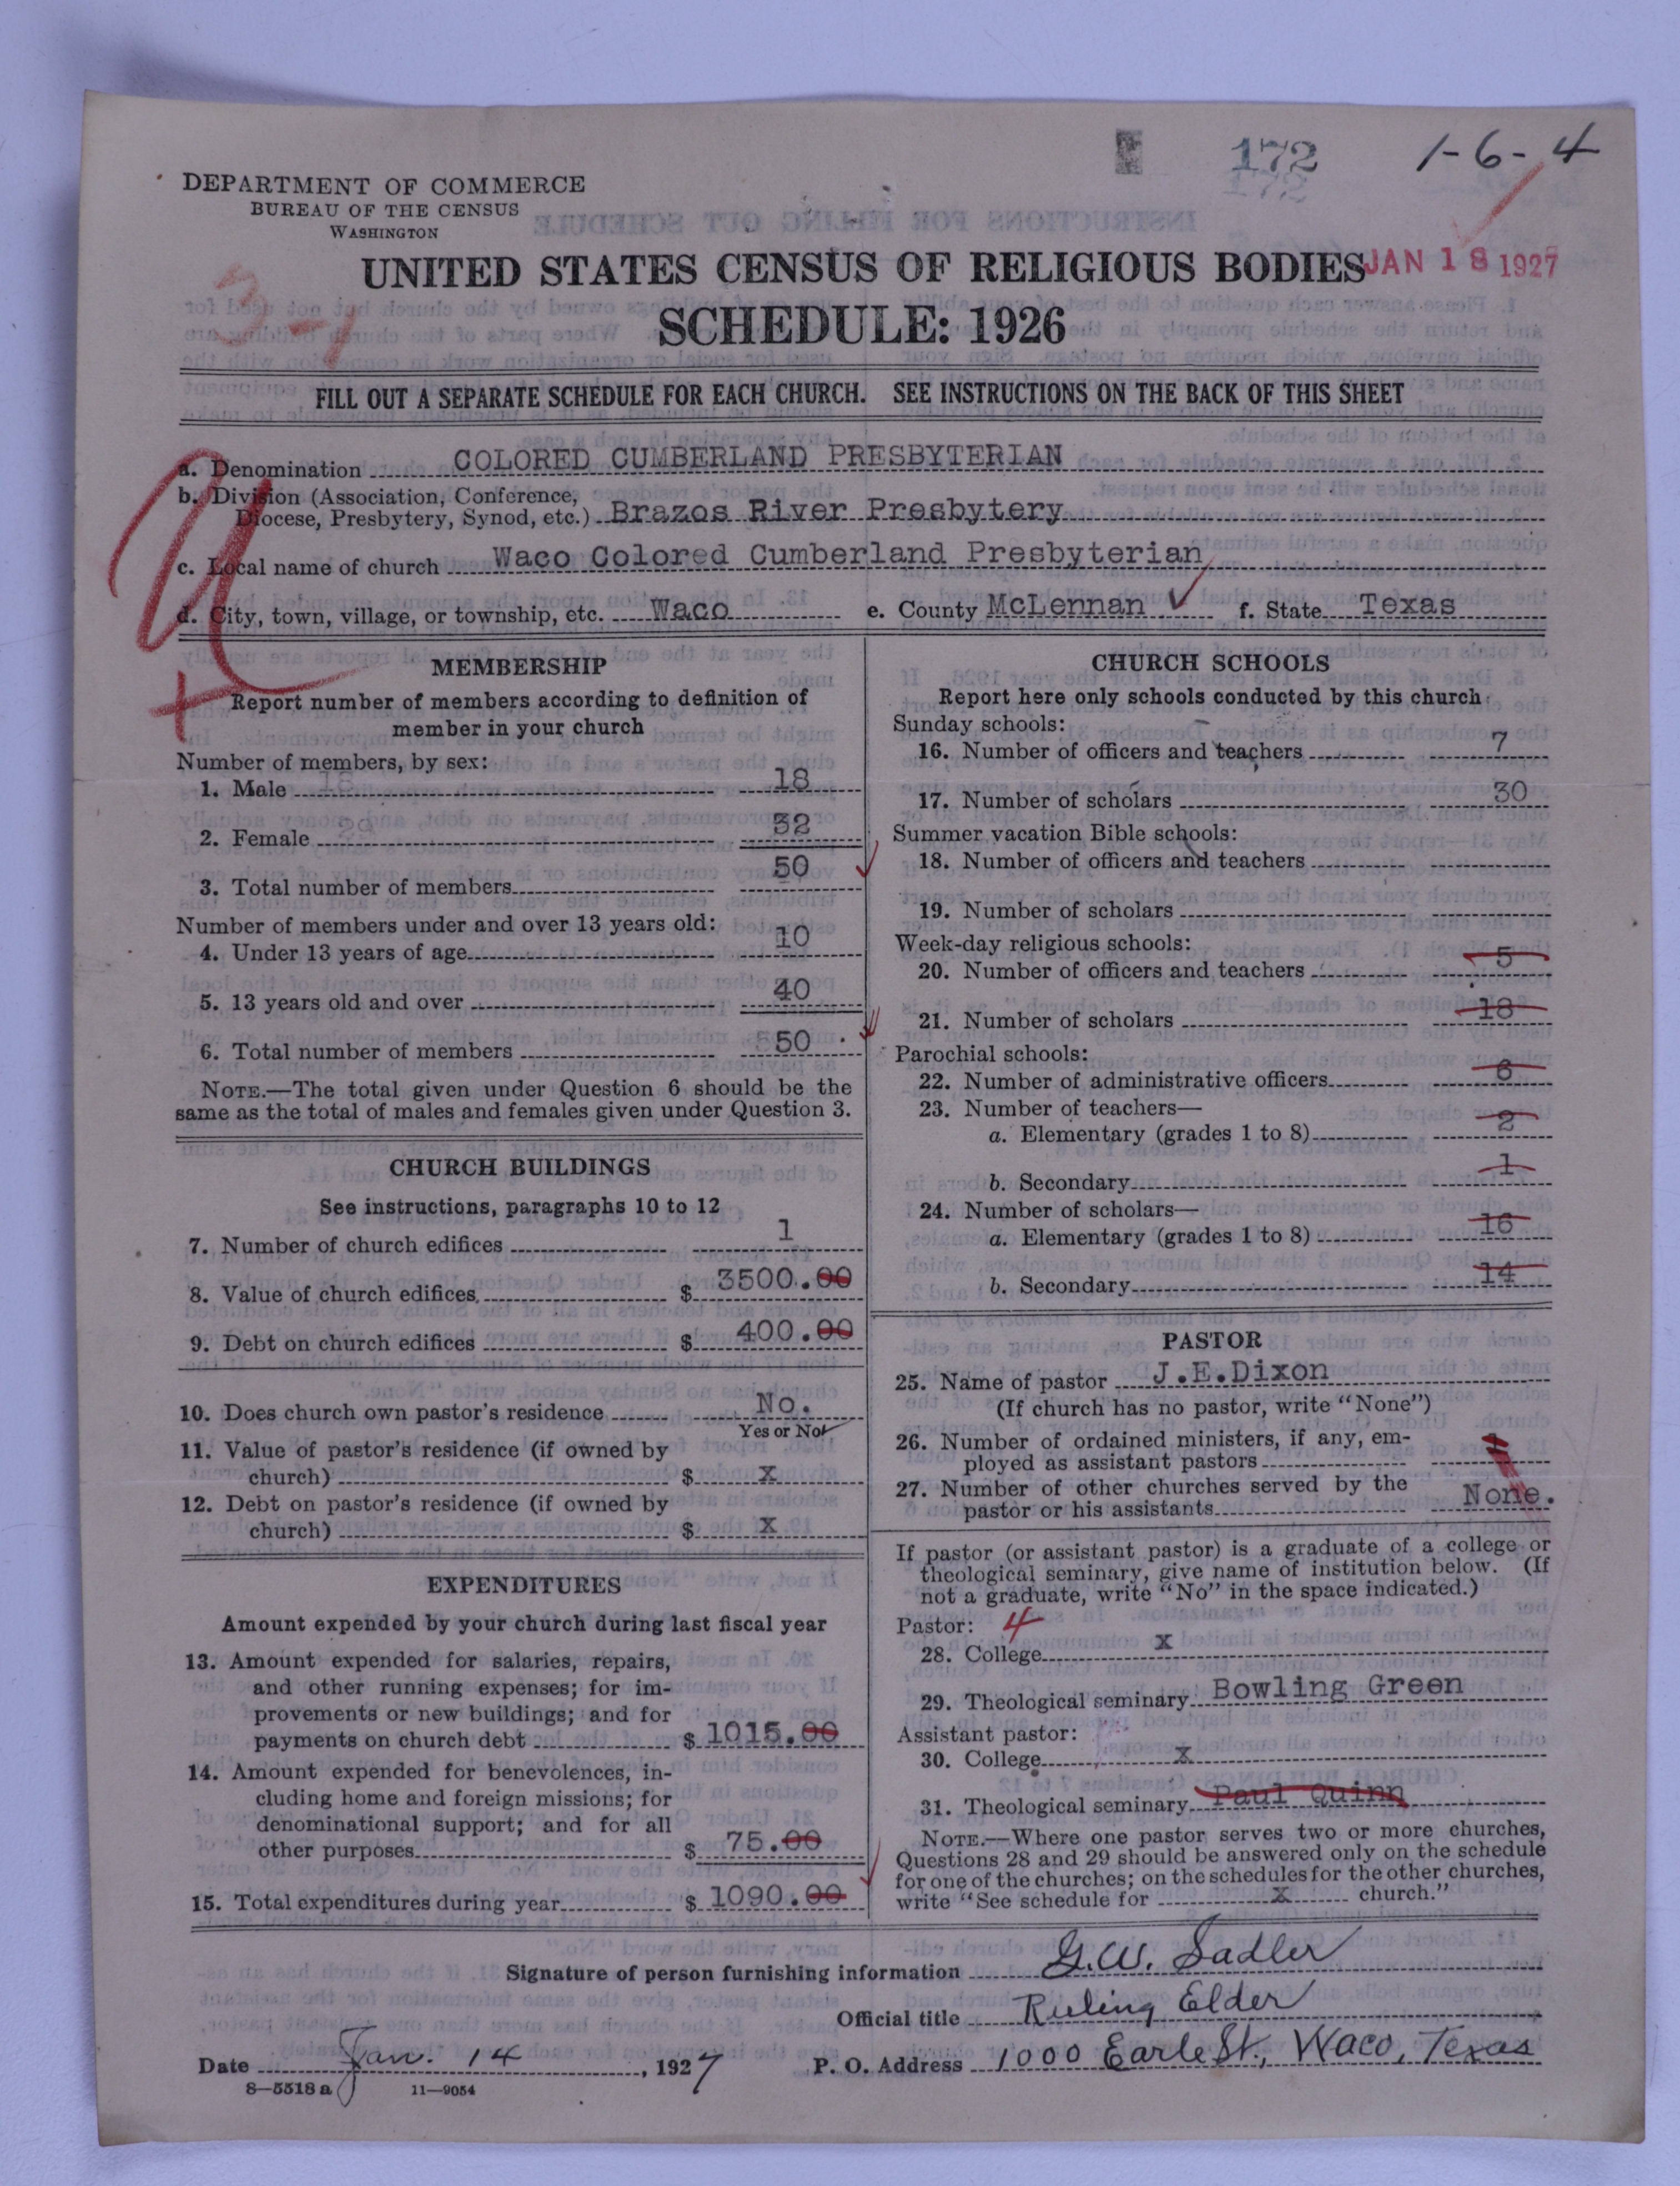 172
1-6-4
DEPARTMENT OF COMMERCE
BUREAU OF THE CENSUS
WASHINGTON
UNITED STATES CENSUS OF RELIGIOUS BODIES
JAN 18 1927
SCHEDULE: 1926
FILL OUT A SEPARATE SCHEDULE FOR EACH CHURCH. SEE INSTRUCTIONS ON THE BACK OF THIS SHEET
a. Denomination COLORED CUMBERLAND PRESBYTERIAN
b. Division (Association, Conference,
Diocese, Presbytery, Synod, etc.) Brazos River Presbytery
c. Local name of church Waco Colored Cumberland Presbyterian
d. City, town, village, or township, etc. Waco e. County McLennan f. State Texas
MEMBERSHIP
Report number of members according to definition of
member in your church
Number of members, by sex:
1. Male 18
2. Female 32
3. Total number of members 50
Number of members under and over 13 years old:
4. Under 13 years of age 10
5. 13 years old and over 40
6. Total number of members 50
NOTE.—The total given under Question 6 should be the
same as the total of males and females given under Question 3.
CHURCH BUILDINGS
See instructions, paragraphs 10 to 12
7. Number of church edifices 1
8. Value of church edifices $ 3500.00
9. Debt on church edifices $ 400.00
10. Does church own pastor's residence No.
Yes or No
11. Value of pastor's residence (if owned by
church) $ x
12. Debt on pastor's residence (if owned by
church) $ x
EXPENDITURES
Amount expended by your church during last fiscal year
13. Amount expended for salaries, repairs,
and other running expenses; for im-
provements or new buildings; and for
payments on church debt $ 1015.00
14. Amount expended for benevolences, in-
cluding home and foreign missions; for
denominational support; and for all
other purposes $ 75.00
15. Total expenditures during year $ 1090.00
CHURCH SCHOOLS
Report here only schools conducted by this church
Sunday schools:
16. Number of officers and teachers 7
17. Number of scholars 30
Summer vacation Bible schools:
18. Number of officers and teachers
19. Number of scholars
Week-day religious schools:
20. Number of officers and teachers 5
21. Number of scholars 18
Parochial schools:
22. Number of administrative officers 6
23. Number of teachers—
a. Elementary (grades 1 to 8) 2
b. Secondary 1
24. Number of scholars—
a. Elementary (grades 1 to 8) 16
b. Secondary 14
PASTOR
25. Name of pastor J.E.Dixon
(If church has no pastor, write "None")
26. Number of ordained ministers, if any, em-
ployed as assistant pastors
27. Number of other churches served by the
pastor or his assistants None.
If pastor (or assistant pastor) is a graduate of a college or
theological seminary, give name of institution below. (If
not a graduate, write "No" in the space indicated.)
Pastor: 4
28. College x
29. Theological seminary Bowling Green
Assistant pastor:
30. College x
31. Theological seminary Paul Quinn
NOTE.—Where one pastor serves two or more churches,
Questions 28 and 29 should be answered only on the schedule
for one of the churches; on the schedules for the other churches,
write "See schedule for x church."
Signature of person furnishing information G.W. Sadler
Official title Ruling Elder
Date Jan. 14, 1927 P. O. Address 1000 Earle St., Waco, Texas
8—5518a 11—9054